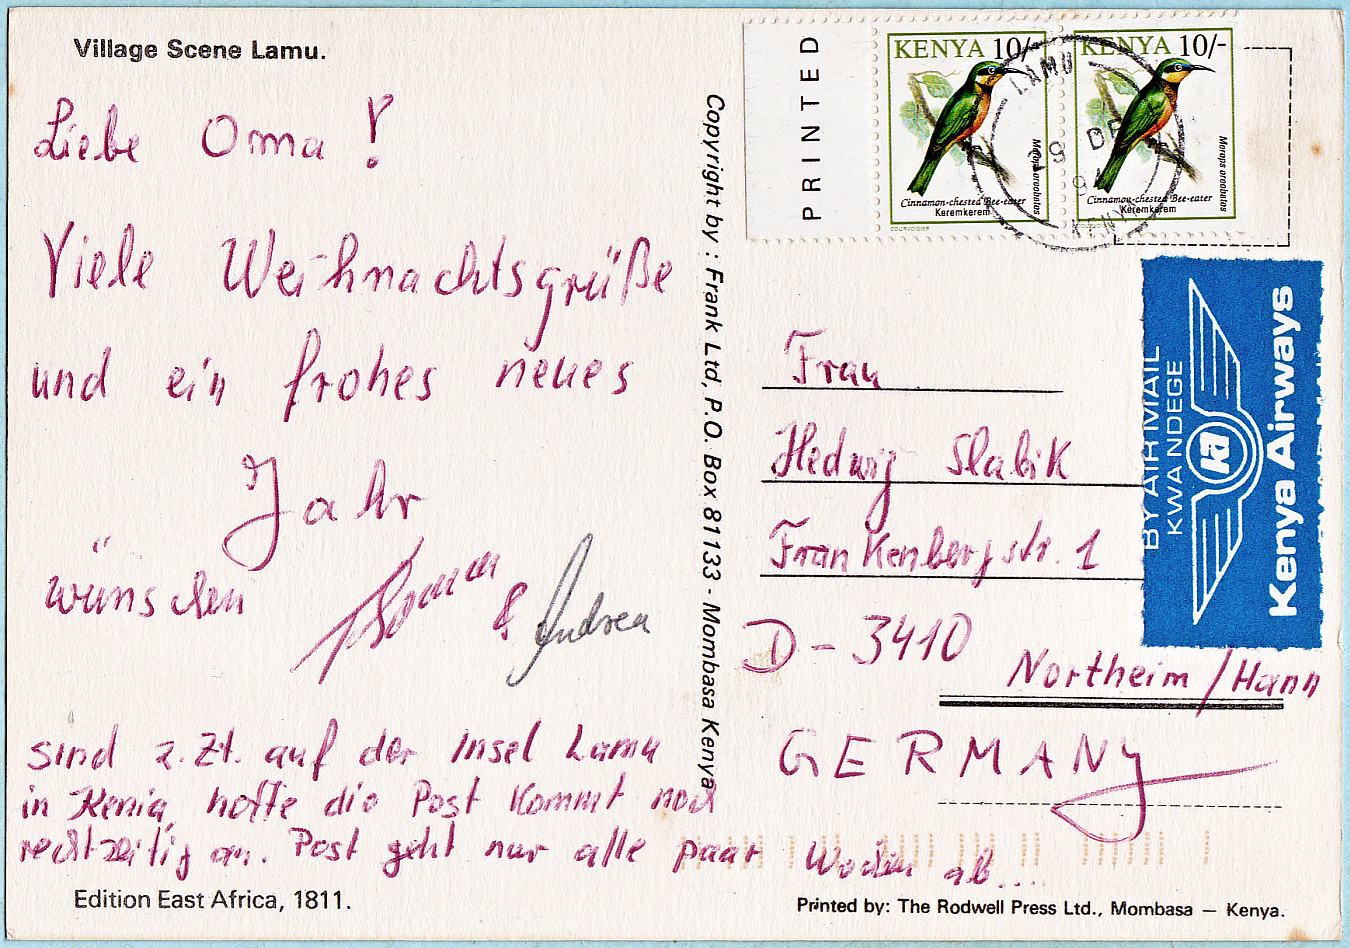 Village Scene Lamu.
Liebe Oma!
Viele Weihnachtsgrüße
und ein frohes neues
Jahr
wünschen
& Andrea
sind z.Zt. auf der Insel Lamu
in Kenia, hoffe die Post kommt noch
rechtzeitig an. Post geht nur alle paar Wochen ab....
Edition East Africa, 1811.
Copyright by : Frank Ltd, P.O. Box 81133 - Mombasa Kenya
PRINTED
KENYA 10/-
Merops oreobates
Cinnamon-chested Bee-eater
Keremkerem
COURVOISIER
KENYA 10/-
Merops oreobates
Cinnamon-chested Bee-eater
Keremkerem
LAMU
KENYA
BY AIR MAIL
KWA NDEGE
Kenya Airways
Frau
Hedwig Slabik
Frankenbergstr. 1
D - 3410
Northeim / Hann
GERMANY
Printed by: The Rodwell Press Ltd., Mombasa — Kenya.